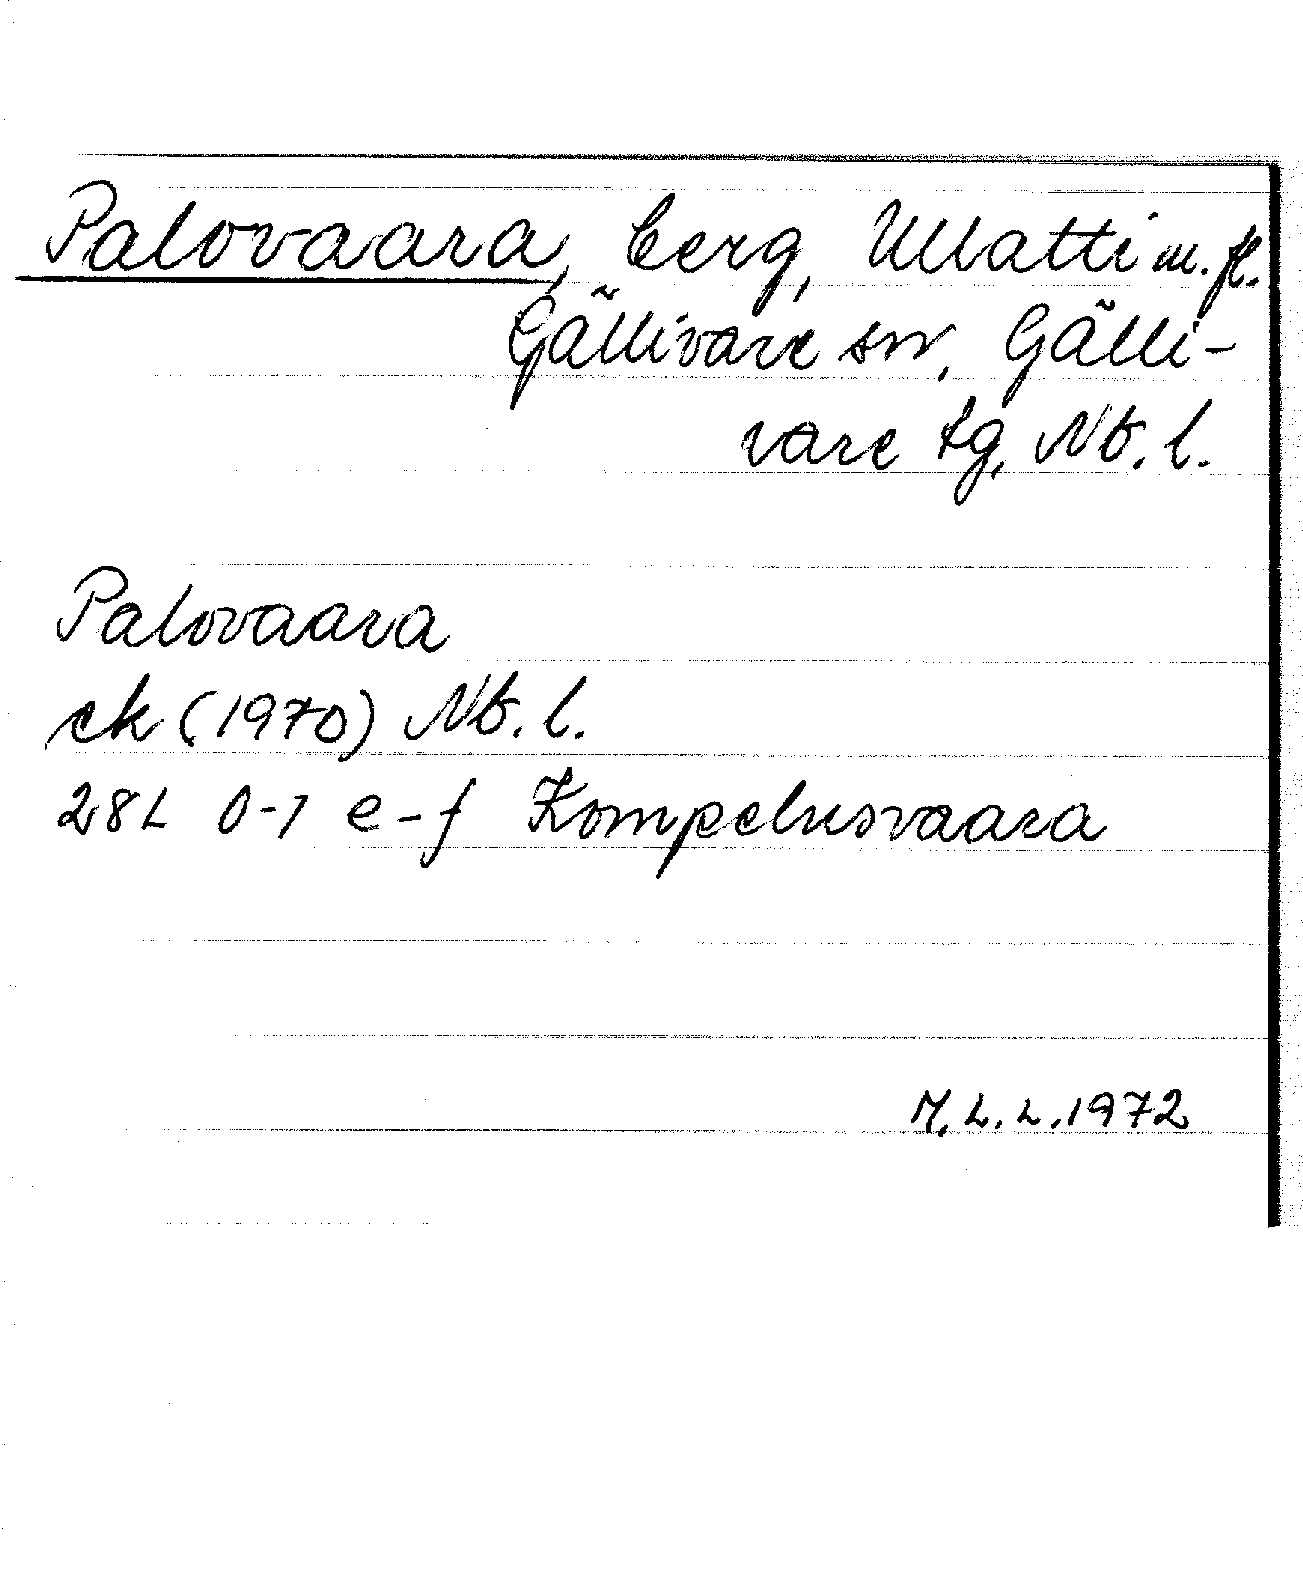 Palovaara, berg, Ullatti m.fl.
Gällivare sn, Gälli-
vare tg, Nb. l.
Palovaara
ek (1970) Nb. l.
28L 0-1 e-f Kompelusvaara
M.L.L.1972